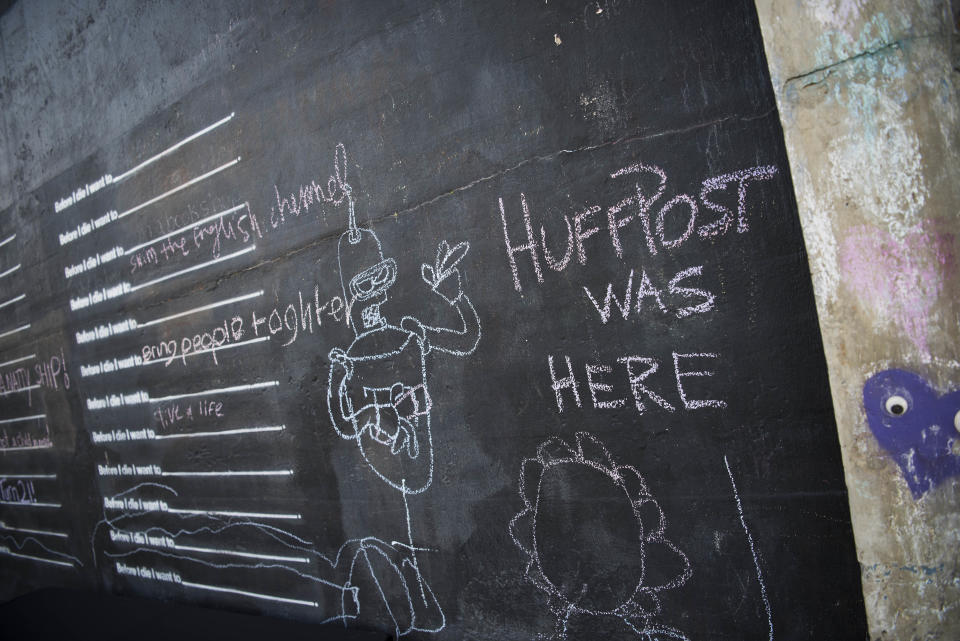 Before I die I want to
Before I die I want to
Before I die I want to
swim the English channel
Before I die I want to
Before I die I want to
Before I die I want to Bring people togehter
Before I die I want to
live a life
Before I die I want to
Before I die I want to
Before I die I want to
Before I die I want to
Before I die I want to
SHIP!
Turn 21!
HUFFPOST
WAS
HERE